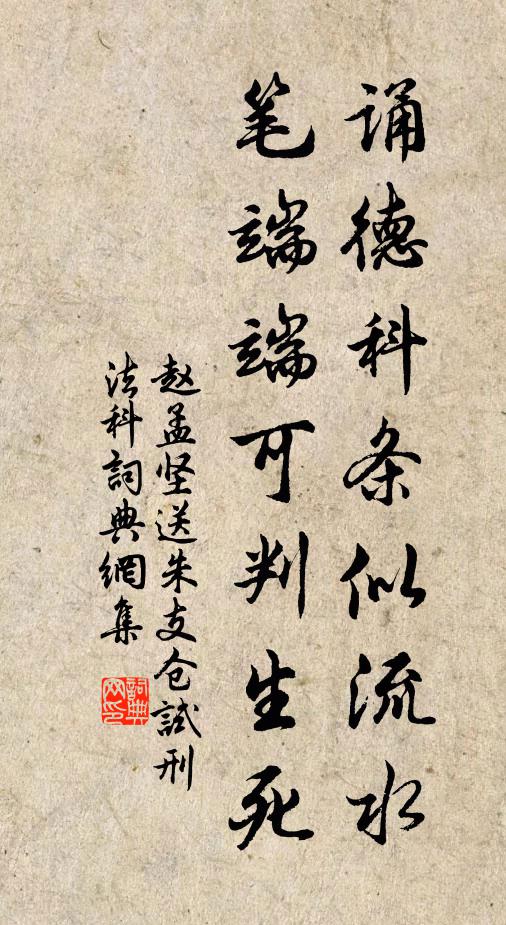 诵德科条似流水
笔端端可判生死
赵孟坚送朱支仓試刑
法科詞典網集
詞典
网印